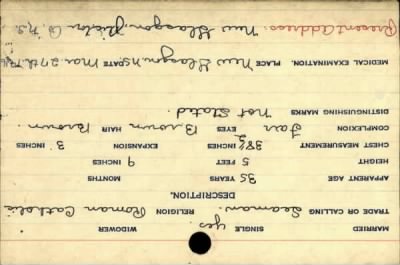 MARRIED SINGLE yes. WIDOWER
TRADE OR CALLING Seaman. RELIGION Roman Catholic
DESCRIPTION.
APPARENT AGE 35 YEARS MONTHS
HEIGHT 5 FEET 9 INCHES
CHEST MEASUREMENT 38½ INCHES EXPANSION 3 INCHES
COMPLEXION Fair EYES Brown HAIR Brown.
DISTINGUISHING MARKS Not Stated.
MEDICAL EXAMINATION. PLACE New Glasgow, N.S. DATE Mar 27th.
Present address: New Glasgow, Pictou Co. N.S.